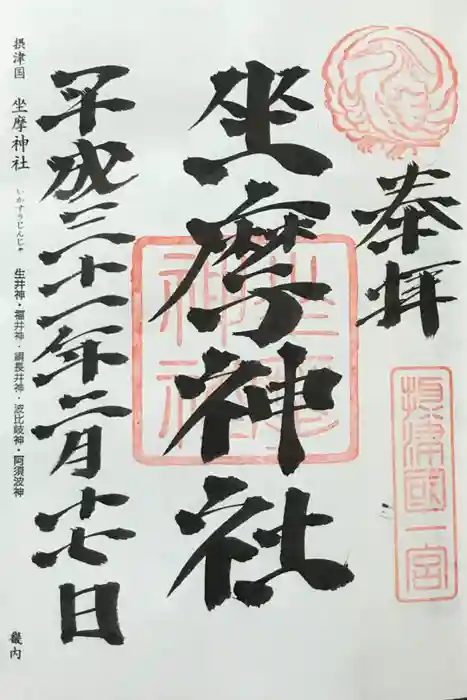 奉拝
摂津國一宮
坐摩神社
坐摩神社
平成三十一年二月十七日
摂津国 坐摩神社 生井神・福井神・綱長井神・波比岐神・阿須波神 畿内
いかすりじんじゃ